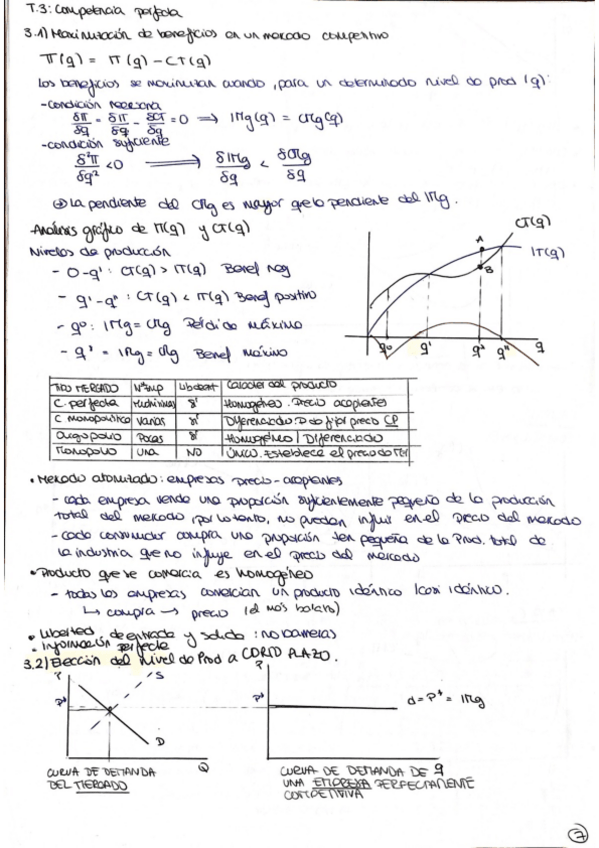 T.3: Competencia perfecta
3.1) Maximización de beneficios en un mercado competitivo
π(q) = IT(q) - CT(q)
Los beneficios se maximizan cuando, para un determinado nivel de prod (q):
-condición necesaria
δπ/δq = δIT/δq - δCT/δq = 0 ⟹ IMg(q) = CMg(q)
-condición suficiente
δ²π/δq² < 0 ⟹ δIMg/δq < δCMg/δq
La pendiente del CMg es mayor que la pendiente del IMg.
-Análisis gráfico de IT(q) y CT(q)
Niveles de producción
- 0-q' : CT(q) > IT(q) Benef neg
- q'-q'' : CT(q) < IT(q) Benef positivo
- q⁰ : IMg = CMg Pérdida máxima
- q² = IMg = CMg Benef máximo
CT(q)
IT(q)
A
B
q⁰ q' q² q'' q
TIPO MERCADO | Nº Emp | Lib de ent | Carácter del producto
C. perfecta | Muchísimas | sí | Homogéneo. Precio aceptantes
C monopolística | Varias | sí | Diferenciado. P. de fijar precio CP
Oligopolio | Pocas | sí | Homogéneo / Diferenciado
Monopolio | Una | NO | Único. Establece el precio do
• Mercado atomizado: empresas precio-aceptantes
- cada empresa vende una proporción suficientemente pequeña de la producción
total del mercado, por lo tanto, no pueden influir en el precio del mercado
- cada consumidor compra una proporción tan pequeña de la Prod. total de
la industria que no influye en el precio del mercado
• Producto que se comercia es homogéneo
- todas las empresas comercian un producto idéntico / casi idéntico.
↳ compra → precio (el más barato)
• Libertad de entrada y salida: no barreras
• Información perfecta
3.2) Elección del nivel de Prod a CORTO PLAZO.
P
S
P*
D
Q
CURVA DE DEMANDA
DEL MERCADO
P
P*
d = P* = IMg
CURVA DE DEMANDA DE q
UNA EMPRESA PERFECTAMENTE
COMPETITIVA
7